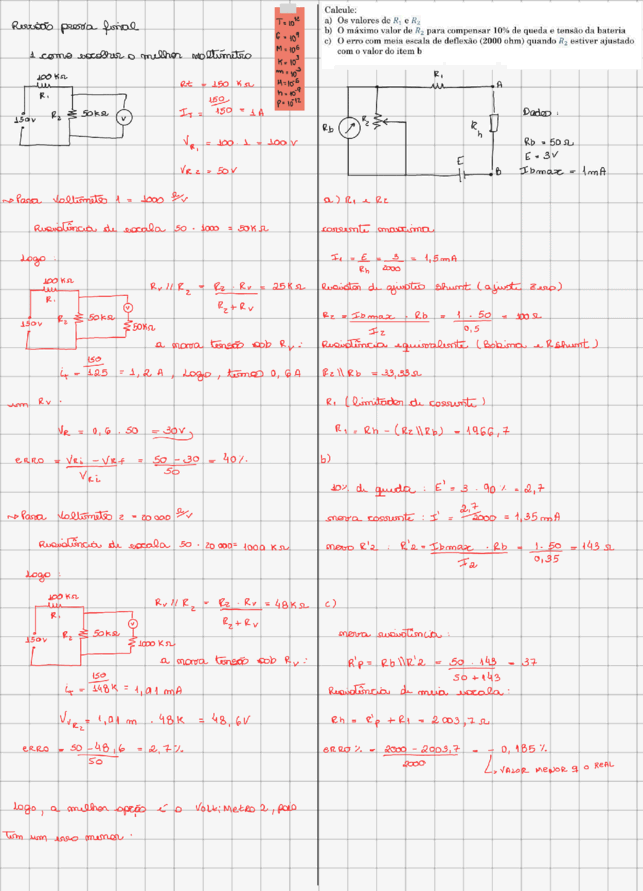 Revisão prova final
T = 10¹²
G = 10⁹
M = 10⁶
K = 10³
m = 10⁻³
μ = 10⁻⁶
n = 10⁻⁹
p = 10⁻¹²
1 como escolher o melhor voltímetro
100 KΩ
R₁
150v
R₂
50KΩ
V
Rt = 150 KΩ
I_T = 150/150 = 1A
V_R₁ = 100 . 1 = 100 V
V_R2 = 50V
→ Para Voltímetro 1 = 1000 Ω/V
Resistência de escala 50 . 1000 = 50K Ω
Logo :
100 KΩ
R₁
150v
R₂
50KΩ
V
50KΩ
Rv // R₂ = R₂ . Rv / R₂ + Rv = 25KΩ
a nova tensão sob Rv :
i_t = 150/125 = 1,2 A , Logo , temos 0,6 A
em Rv .
V_R = 0,6 . 50 = 30V
erro = VRi – VRf / VRi = 50 – 30 / 50 = 40%
→ Para Voltímetro 2 = 20 000 Ω/V
Resistência de escala 50 . 20 000 = 1000 KΩ
Logo :
100 KΩ
R₁
150v
R₂
50KΩ
V
1000 KΩ
Rv // R₂ = R₂ . Rv / R₂ + Rv = 48KΩ
a nova tensão sob Rv :
i_t = 150/148K = 1,01 mA
V_VR₂ = 1,01 m . 48K = 48,6V
erro = 50 – 48,6 / 50 = 2,7%
Logo, a melhor opção é o Voltímetro 2, pois
tem um erro menor .
Calcule:
a) Os valores de R₁ e R₂
b) O máximo valor de R₂ para compensar 10% de queda e tensão da bateria
c) O erro com meia escala de deflexão (2000 ohm) quando R₂ estiver ajustado
com o valor do item b
R₁
A
Rb
R₂
Rh
E
B
Dados:
Rb = 50 Ω
E = 3V
Ibmax = 1mA
a) R₁ e R₂
corrente maxima
I_t = E/Rh = 3/2000 = 1,5mA
Resistor de ajustes shunt (ajuste zero)
R₂ = Ibmax . Rb / I₂ = 1 . 50 / 0,5 = 100 Ω
Resistência equivalente (Bobina e Rshunt)
R₂ // Rb = 33,33Ω
R₁ (limitador de corrente)
R₁ = Rh – (R₂ // Rb) = 1966,7
b)
10% de queda : E' = 3 . 90% = 2,7
nova corrente : I' = 2,7/2000 = 1,35 mA
novo R'2 : R'2 = Ibmax . Rb / I₂ = 1 . 50 / 0,35 = 143 Ω
c)
nova resistência :
R'p = Rb // R'2 = 50 . 143 / 50 + 143 = 37
Resistência de meia escala :
Rh = R'p + R1 = 2003,7 Ω
erro % = 2000 – 2003,7 / 2000 = – 0,185%
↳ VALOR MENOR q O REAL